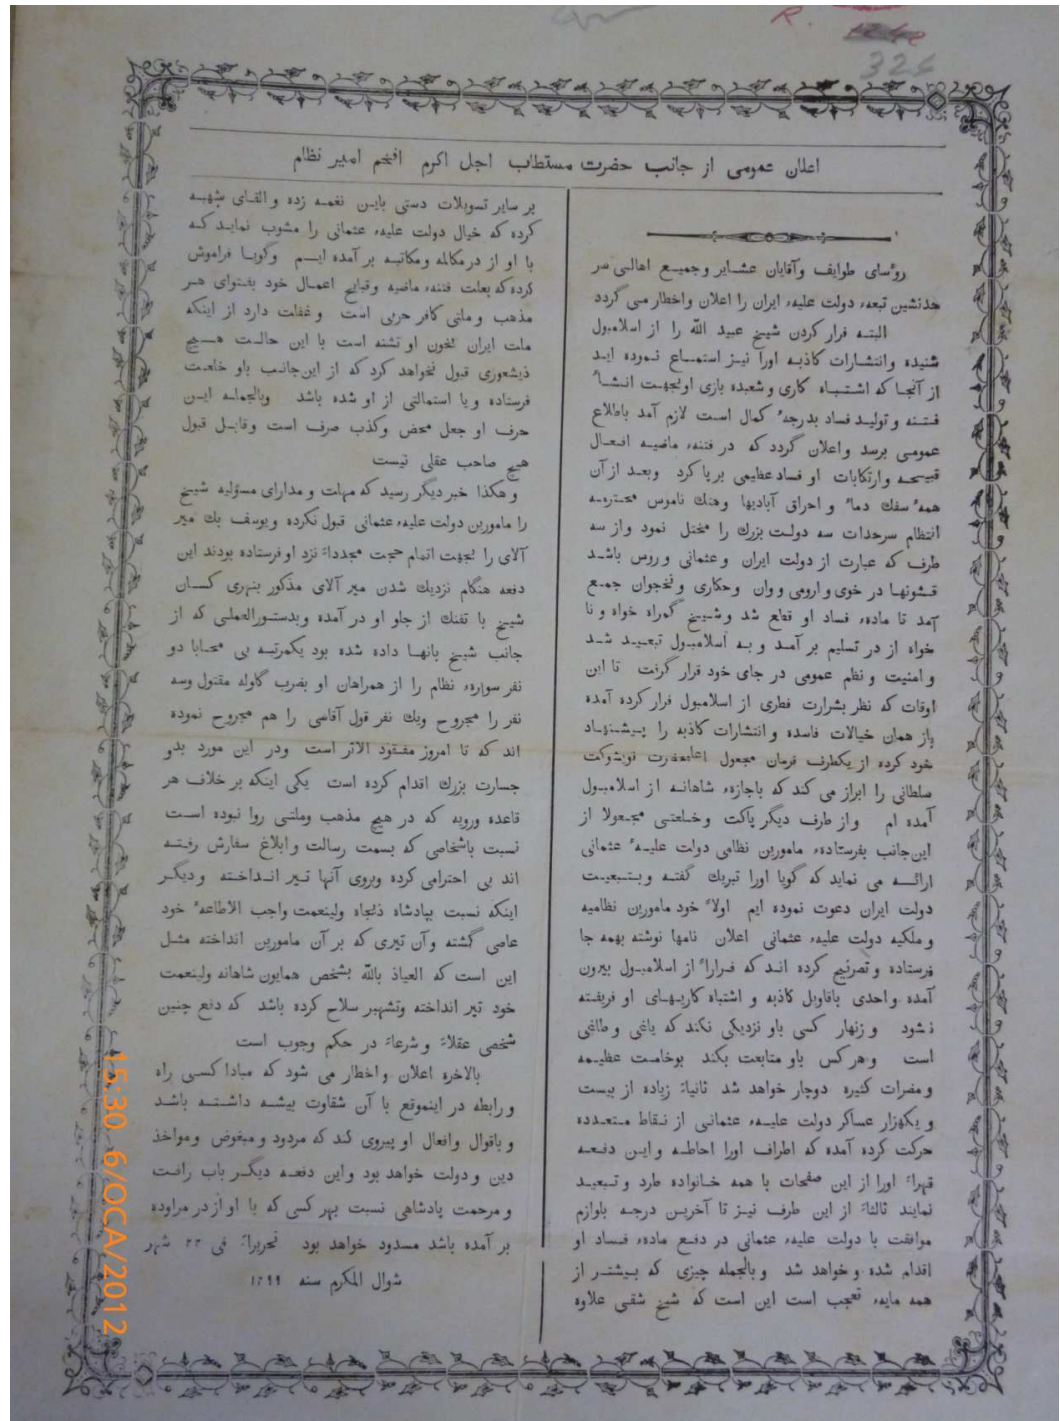 R.
324
اعلان عمومی از جانب حضرت مستطاب اجل اکرم افخم امیر نظام
رؤسای طوایف وآقایان عشایر وجمیع اهالی سر
حدنشین تبعهء دولت علیهء ایران را اعلان واخطار می گردد
البته فرار کردن شیخ عبید الله را از اسلامبول
شنیده وانتشارات کاذبه اورا نیز استماع نموده اید
از آنجا که اشتباه کاری وشعبده بازی اونجهت انشاءً
فتنه وتولید فساد بدرجهٔ کمال است لازم آمد باطلاع
عمومی برسد واعلان گردد که در فتنهء ماضیه افعال
قبیحه وارتکابات او فساد عظیمی برپا کرد وبعد از آن
همهٔ سفك دماءً و احراق آبادیها وهتك ناموس محترمه
انتظام سرحدات سه دولت بزرك را مختل نمود واز سه
طرف که عبارت از دولت ایران وعثمانی وروس باشد
قشونها در خوی وارومی ووان وحکاری ونخجوان جمع
آمد تا مادهء فساد او قطع شد وشیخ گمراه خواه ونا
خواه از در تسلیم بر آمد وبه اسلامبول تبعید شد
وامنیت ونظم عمومی در جای خود قرار گرفت تا این
اوقات که نظر بشرارت فطری از اسلامبول فرار کرده آمده
باز همان خیالات فاسده وانتشارات کاذبه را پیشنهاد
خود کرده از یکطرف فرمان مجعول اعلیحضرت قویشوکت
سلطانی را ابراز می کند که باجازهء شاهانه از اسلامبول
آمده ام واز طرف دیگر پاکت وخلعتی مجعولا از
این‌جانب بفرستادهء مامورین نظامی دولت علیهٔ عثمانی
ارائه می نماید که گویا اورا تبریك گفته وبتبعیت
دولت ایران دعوت نموده ایم اولاً خود مامورین نظامیه
وملکیه دولت علیهء عثمانی اعلان نامها نوشته بهمه جا
فرستاده وتصریح کرده اند که فراراً از اسلامبول بیرون
آمده واحدی باقاویل کاذبه و اشتباه کاریهای او فریفته
نشود و زنهار کسی باو نزدیکی نکند که یاغی وطاغی
است وهرکس باو متابعت بکند بوخامت عظیمه
ومضرات کثیره دوچار خواهد شد ثانیاً زیاده از بیست
ویکهزار عساکر دولت علیهء عثمانی از نقاط متعدده
حرکت کرده آمده که اطراف اورا احاطه واین دفعه
قهراً اورا از این صفحات با همه خانواده طرد وتبعید
نمایند ثالثاً از این طرف نیز تا آخرین درجه بلوازم
موافقت با دولت علیهء عثمانی در دفع مادهء فساد او
اقدام شده وخواهد شد وبالجمله چیزی که بیشتر از
همه مایهء تعجب است این است که شیخ شقی علاوه
بر سایر تسویلات دستی باین نغمه زده والقای شبهه
کرده که خیال دولت علیهء عثمانی را مشوب نماید که
با او از درمکالمه ومکاتبه بر آمده ایم وگویا فراموش
کرده که بعلت فتنهء ماضیه وقبایح اعمال خود بفتوای هر
مذهب وملتی کافر حربی است وغفلت دارد از اینکه
ملت ایران بخون او تشنه است با این حالت هیچ
ذیشعوری قبول نخواهد کرد که از این‌جانب باو خلعت
فرستاده ویا استمالتی از او شده باشد وبالجمله این
حرف او جعل محض وکذب صرف است وقابل قبول
هیچ صاحب عقلی نیست
وهکذا خبر دیگر رسید که مهلت ومدارای مسؤلیه شیخ
را مامورین دولت علیهء عثمانی قبول نکرده ویوسف بك میر
آلای را بجهت اتمام حجت مجدداً نزد او فرستاده بودند این
دفعه هنگام نزدیك شدن میر آلای مذکور بنهری کسان
شیخ با تفنك از جلو او در آمده وبدستورالعملی که از
جانب شیخ بانها داده شده بود یکمرتبه بی محابا دو
نفر سوارهء نظام را از همراهان او بضرب گلوله مقتول وسه
نفر را مجروح ویك نفر قول آقاسی را هم مجروح نموده
اند که تا امروز مفقود الاثر است ودر این مورد بدو
جسارت بزرك اقدام کرده است یکی اینکه برخلاف هر
قاعده ورویه که در هیچ مذهب وملتی روا نبوده است
نسبت باشخاصی که بسمت رسالت وابلاغ سفارش رفته
اند بی احترامی کرده وبروی آنها تیر انداخته ودیگر
اینکه نسبت بپادشاه ذیجاه ولینعمت واجب الاطاعهٔ خود
عاصی گشته وآن تیری که بر آن مامورین انداخته مثل
این است که العیاذ بالله بشخص همایون شاهانه ولینعمت
خود تیر انداخته وتشهیر سلاح کرده باشد که دفع چنین
شخصی عقلاً وشرعاً در حکم وجوب است
بالاخره اعلان واخطار می شود که مبادا کسی راه
ورابطه در اینموقع با آن شقاوت پیشه داشته باشد
وباقوال وافعال او پیروی کند که مردود ومبغوض ومواخذ
دین ودولت خواهد بود واین دفعه دیگر باب رافت
ومرحمت پادشاهی نسبت بهر کسی که با او از در مراوده
بر آمده باشد مسدود خواهد بود تحریراً فی ۲۲ شهر
شوال المکرم سنه ۱۲۹۹
15:30 6/OCA/2012